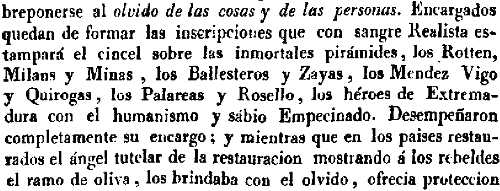 breponerse al olvido de las cosas y de las personas. Encargados
quedan de formar las inscripciones que con sangre Realista es-
tampará el cincel sobre las inmortales pirámides, los Rotten,
Milans y Minas, los Ballesteros y Zayas, los Mendez Vigo
y Quirogas, los Palareas y Rosello, los héroes de Extrema-
dura con el humanismo y sábio Empecinado. Desempeñaron
completamente su encargo; y mientras que en los paises restau-
rados el ángel tutelar de la restauracion mostrando á los rebeldes
el ramo de oliva, los brindaba con el olvido, ofrecia proteccion